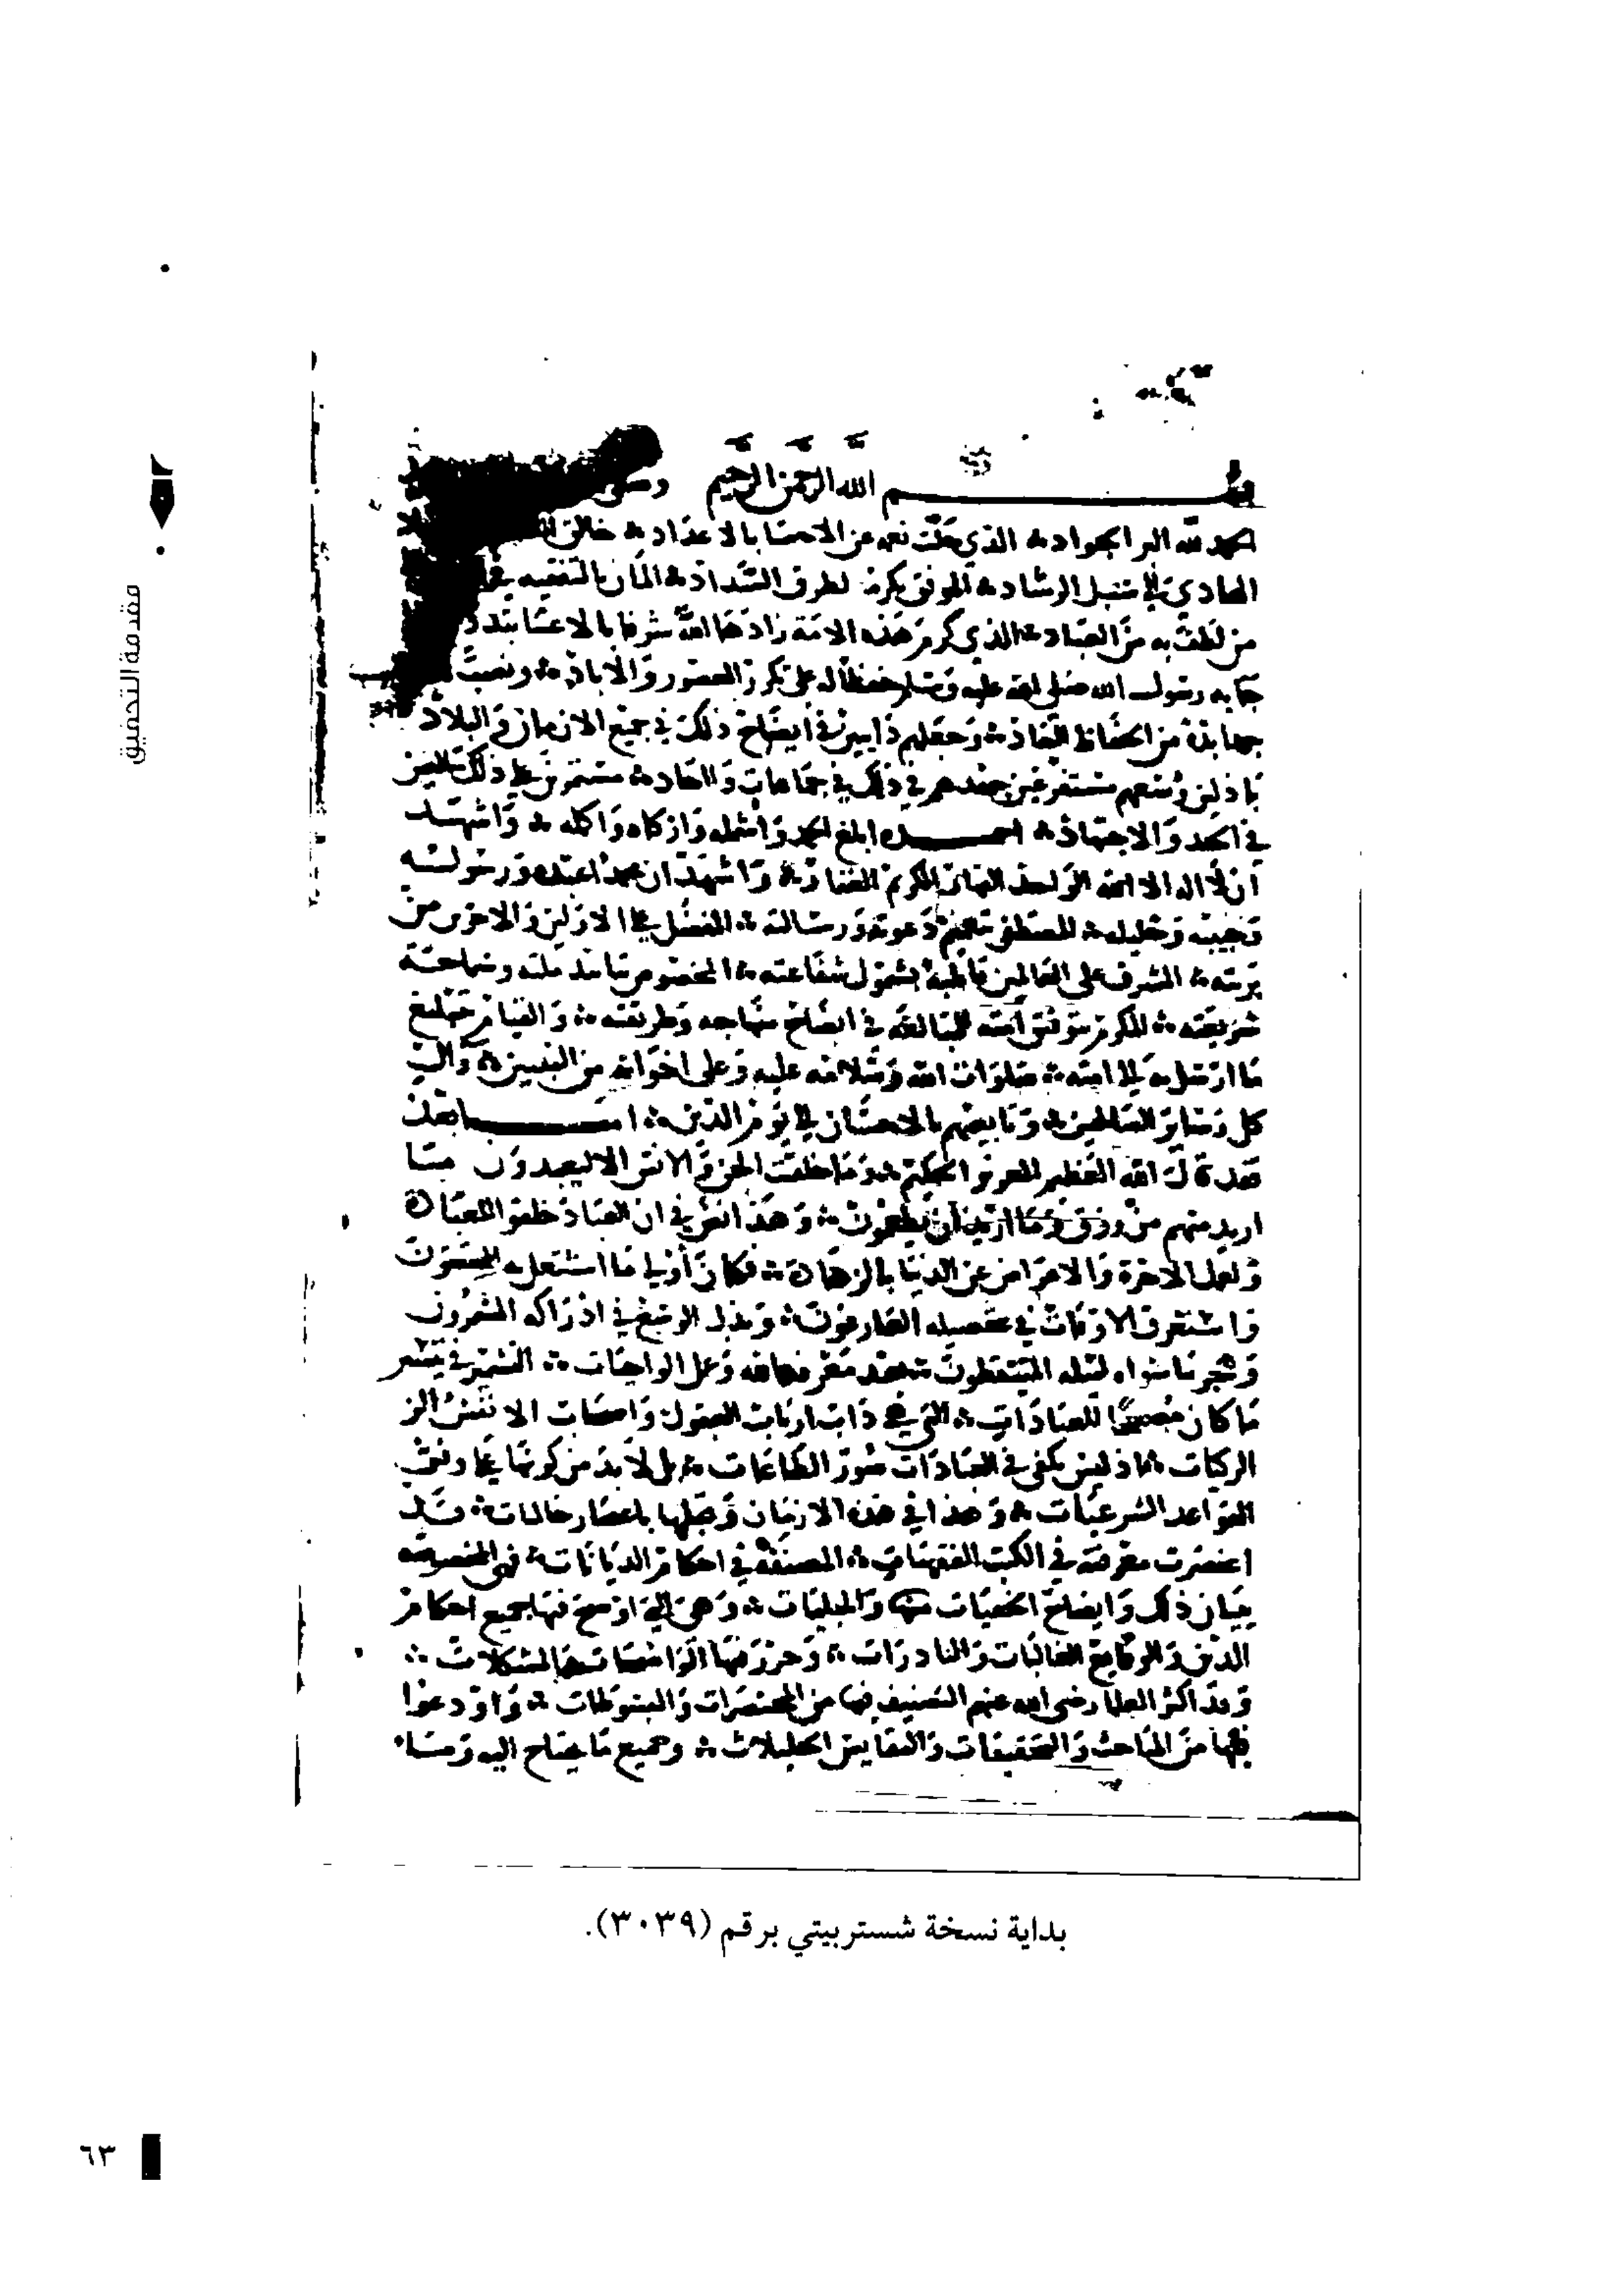 مقدمة التحقيق
بســـم الله الرحمن الرحيم وصلى
الحمد لله البر الجواد ۞ الذي جلت نعمه عن الاحصا بالاعداد ۞ خالق
الهادي الى سبيل الرشاد ۞ الموفق بكرمه لطرق السداد ۞ المان بالتفقيه في
من لطف به من العباد ۞ الذي كرم هذه الامة زادها الله شرفا بالاعتنا بتد
جا به رسول الله صلى الله عليه وسلم حفظا له على تكرر العصور والاباد ۞ ونصب
جهابذة من الحفاظ النقاد ۞ وجعلهم دايبين في ايضاح ذلك في جميع الازمان والبلاد
باذلين وسعهم مستفرغين جهدهم في ذلك في جماعات واحاد ۞ مستمرين على ذلك
في الجد والاجتهاد ۞ احمـــده ابلغ الحمد واشمله وازكاه واكمله ۞ واشهــد
ان لا اله الا الله الواحد القهار الكريم الغفار ۞ واشهد ان محمدا عبده ورسولــه
وحبيبه وخليله ۞ المصطفى بتعميم دعوته ورسالته ۞ المفضل على الاولين والاخرين من
بريته ۞ المشرف على العالمين قاطبة بشمول شفاعته ۞ المخصوص بتاييد ملته وسماحــة
شريعته ۞ المكرم بتوفيق امته للمبالغة في ايضاح منهاجه وطريقته ۞ والقيام بتبليغ
ما ارسل به الى امته ۞ صلوات الله وسلامه عليه وعلى اخوانه من النبيين ۞ وآل
كل وساير الصالحين ۞ وتابعيهم بالاحسان الى يوم الدين ۞ امـــا بعد
فقد قال الله العظيم العزيز الحكيم ۞ وما خلقت الجن والانس الا ليعبدون مــا
اريد منهم من رزق وما اريد ان يطعمون ۞ وهذا نص في ان العباد خلقوا للعبادة
ولعمل الاخرة والاعراض عن الدنيا بالزهادة ۞ فكان اولى ما اشتغل به المحققون
واستغرق الاوقات في تحصيله العارفون ۞ وبذل الوسع في ادراكه المشمرون
وهجر ما سواه لنيله المتيقظون ۞ بعد معرفة الله وعمل الواجبات ۞ التشمير في تبيين
ما كان مصححا للعبادات ۞ التي هي داب ارباب العقول واصحاب الانفس الز
الزكيات ۞ اذ ليس يكفي في العبادات صور الطاعات ۞ بل لا بد من كونها على وفق
القواعد الشرعيات ۞ وهذا في هذه الازمان وقبلها باعصار خاليات ۞ قــد
انحصرت معرفته في الكتب الفقهيات ۞ المصنفة في احكام الديانات ۞ فهي المخصوصة
ببيان ذلك وايضاح الخفيات منها والجليات ۞ وهي التي اوضح فيها جميع احكام
الدين والوقايع الغالبات والنادرات ۞ وحرر فيها الواضحات والمشكلات ۞
وقد اكثر العلما رضي الله عنهم التصنيف فيها من المختصرات والمبسوطات ۞ واودعوا
فيها من المباحث والتحقيقات والنفايس الجليلات ۞ وجميع ما يحتاج اليه ومــا
بداية نسخة شستربيتي برقم (٣٠٣٩).
٦٣